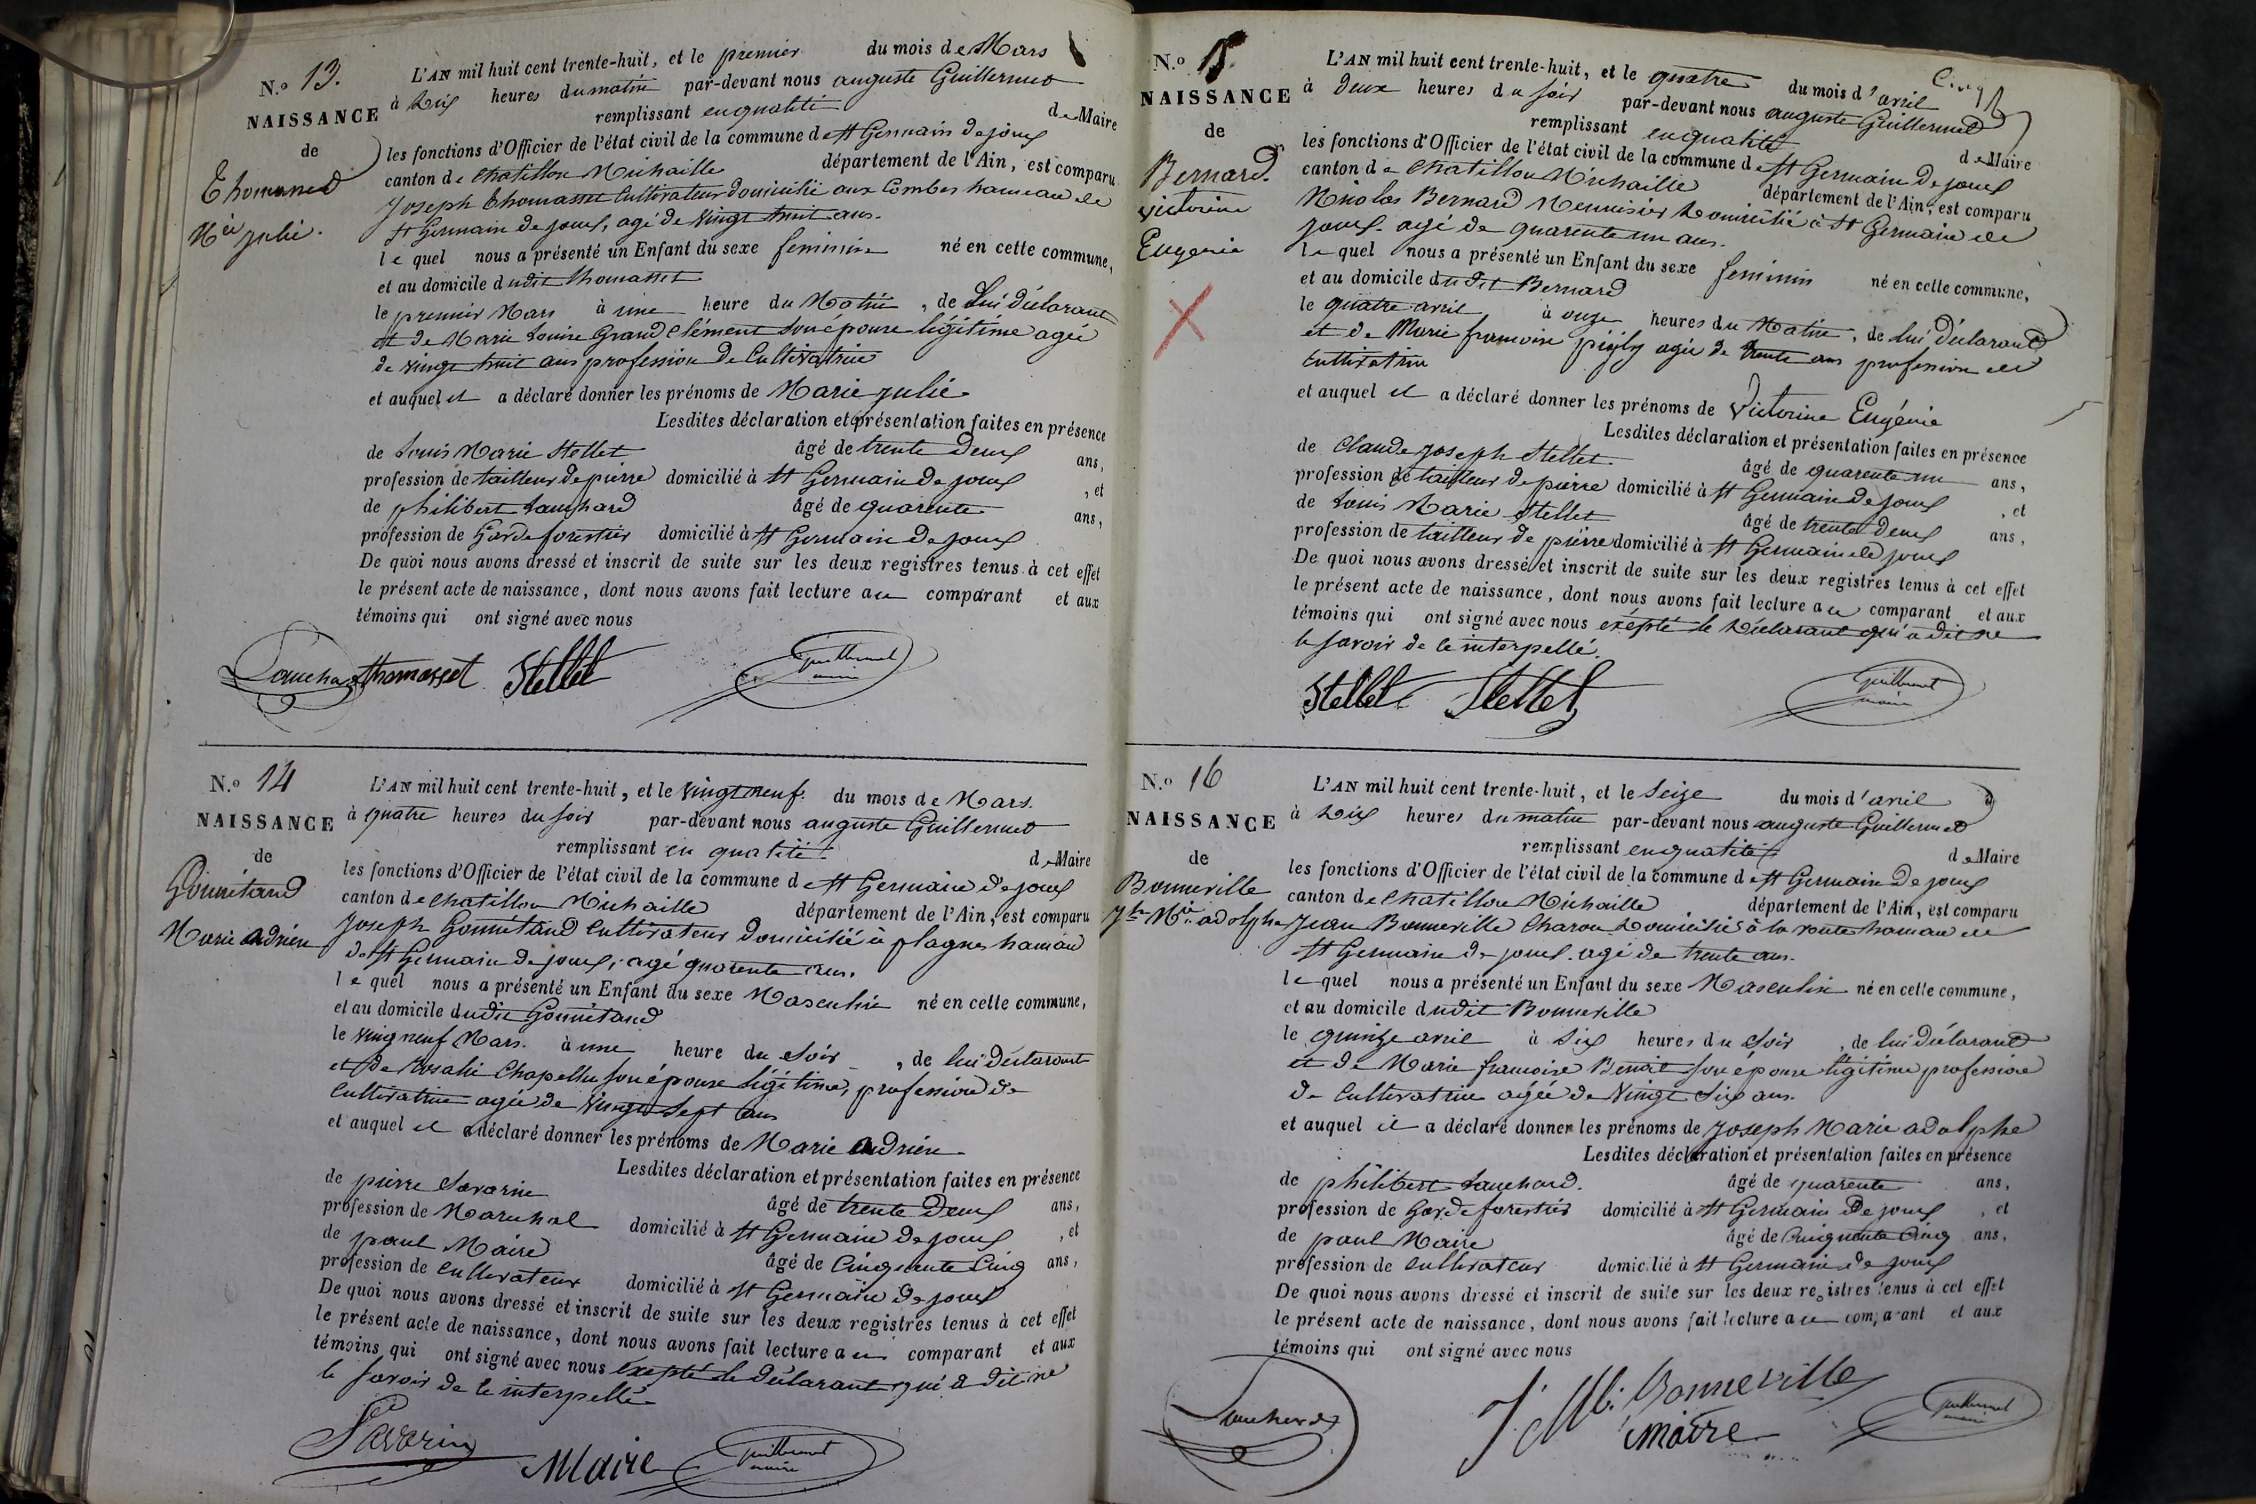 N.o 13.
NAISSANCE
de
Thomasset
Mie julie.
L'AN mil huit cent trente-huit, et le premier du mois de Mars
à Dix heures du matin par-devant nous auguste Guillermet
remplissant en qualité de Maire
les fonctions d'Officier de l'état civil de la commune de St Germain de joux
canton de Chatillon Michaille département de l'Ain, est comparu
Joseph thomasset Cultivateur domicilié aux Combes hameau de
St Germain de joux, agé de vingt huit ans.
le quel nous a présenté un Enfant du sexe feminin né en cette commune,
et au domicile dudit thomasset
le premier Mars à une heure du Matin, de Lui déclarant
et de Marie Louise Grand Clément son épouse légitime agée
de vingt huit ans profession de Cultivatrice
et auquel il a déclaré donner les prénoms de Marie julie
Lesdites déclaration et présentation faites en présence
de Louis Marie Stellet âgé de trente Deux ans,
profession de tailleur de pierre domicilié à St Germain de joux, et
de philibert Lauchard âgé de quarente ans,
profession de Garde forestier domicilié à St Germain de joux
De quoi nous avons dressé et inscrit de suite sur les deux registres tenus à cet effet
le présent acte de naissance, dont nous avons fait lecture au comparant et aux
témoins qui ont signé avec nous
Lauchard thomasset Stellet Guillermet
maire
N.o 14
NAISSANCE
de
Gonnétand
Marie adrien
L'AN mil huit cent trente-huit, et le vingt neuf. du mois de Mars.
à quatre heures du soir par-devant nous auguste Guillermet
remplissant en qualité de Maire
les fonctions d'Officier de l'état civil de la commune de St Germain de joux
canton de Chatillon Michaille département de l'Ain, est comparu
Joseph Gonnétand Cultivateur domicilié à plagnes hamau
de St Germain de joux, agé quarente ans.
le quel nous a présenté un Enfant du sexe Masculin né en cette commune,
et au domicile dudit Gonnétand
le ving neuf Mars. à une heure du soir, de lui déclarant
et de Rosalie Chapellu son épouse légitime, profession de
Cultivatrice agée de vingt sept ans
et auquel il a déclaré donner les prénoms de Marie adrien
Lesdites déclaration et présentation faites en présence
de pierre Savarin âgé de trente Deux ans,
profession de Maruhal domicilié à St Germain de joux, et
de paul Maire âgé de Cinquante Cinq ans,
profession de Cultivateur domicilié à St Germain de joux
De quoi nous avons dressé et inscrit de suite sur les deux registres tenus à cet effet
le présent acte de naissance, dont nous avons fait lecture au comparant et aux
témoins qui ont signé avec nous excepté le déclarant qui a dit ne
le savoir de ce interpellé
Savarin Maire Guillermet
maire
N.o 15.
NAISSANCE
de
Bernard
victorine
Eugenie
L'AN mil huit cent trente-huit, et le quatre du mois d'avril
à Deux heures du soir par-devant nous auguste Guillermet
remplissant en qualité de Maire
les fonctions d'Officier de l'état civil de la commune de St Germain de joux
canton de Chatillon Michaille département de l'Ain, est comparu
Nicolas Bernard Menuisier Domicilié à St Germain de
joux. agé de quarente un ans.
le quel nous a présenté un Enfant du sexe feminin né en cette commune,
et au domicile dudit Bernard
le quatre avril à onze heures du Matin, de lui déclarant
et de Marie francoise agée de trente ans profession de
Cultivatrice
et auquel il a déclaré donner les prénoms de Victorine Eugénie
Lesdites déclaration et présentation faites en présence
de Claude Joseph Stellet. âgé de quarente un ans,
profession de tailleur de pierre domicilié à St Germain de joux, et
de Louis Marie Stellet âgé de trente Deux ans,
profession de tailleur de pierre domicilié à St Germain de joux
De quoi nous avons dressé et inscrit de suite sur les deux registres tenus à cet effet
le présent acte de naissance, dont nous avons fait lecture au comparant et aux
témoins qui ont signé avec nous excepté le Déclarant qui a dit ne
le savoir de ce interpellé.
Stellet Stellet Guillermet
maire
N.o 16
NAISSANCE
de
Bonneville
Jh Mie adolphe
L'AN mil huit cent trente-huit, et le Seize du mois d'avril
à Dix heures du matin par-devant nous auguste Guillermet
remplissant en qualité de Maire
les fonctions d'Officier de l'état civil de la commune de St Germain de joux
canton de Chatillon Michaille département de l'Ain, est comparu
Jean Bonneville Charon Domicilié à la route hamau de
St Germain de joux. agé de trente ans.
le quel nous a présenté un Enfant du sexe Masculin né en cette commune,
et au domicile dudit Bonneville
le quinze avril à Six heures du Soir, de lui déclarant
et de Marie francoise Benoit son épouse légitime profession
de Cultivatrice agée de vingt Six ans.
et auquel il a déclaré donner les prénoms de Joseph Marie adolphe
Lesdites déclaration et présentation faites en présence
de philibert Lauchard. âgé de quarente ans,
profession de Garde forestier domicilié à St Germain de joux, et
de paul Maire âgé de Cinquante Cinq ans,
profession de Cultivateur domicilié à St Germain de joux
De quoi nous avons dressé et inscrit de suite sur les deux registres tenus à cet effet
le présent acte de naissance, dont nous avons fait lecture au comparant et aux
témoins qui ont signé avec nous
Lauchard J. M. Bonneville Guillermet
Maire maire